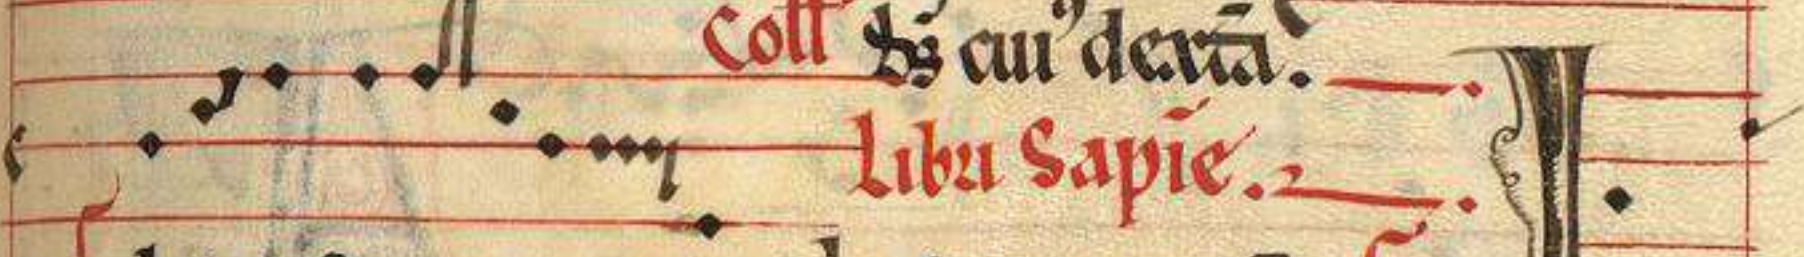 Coll Ds cui' dextā.
Libri Sapiē.
I